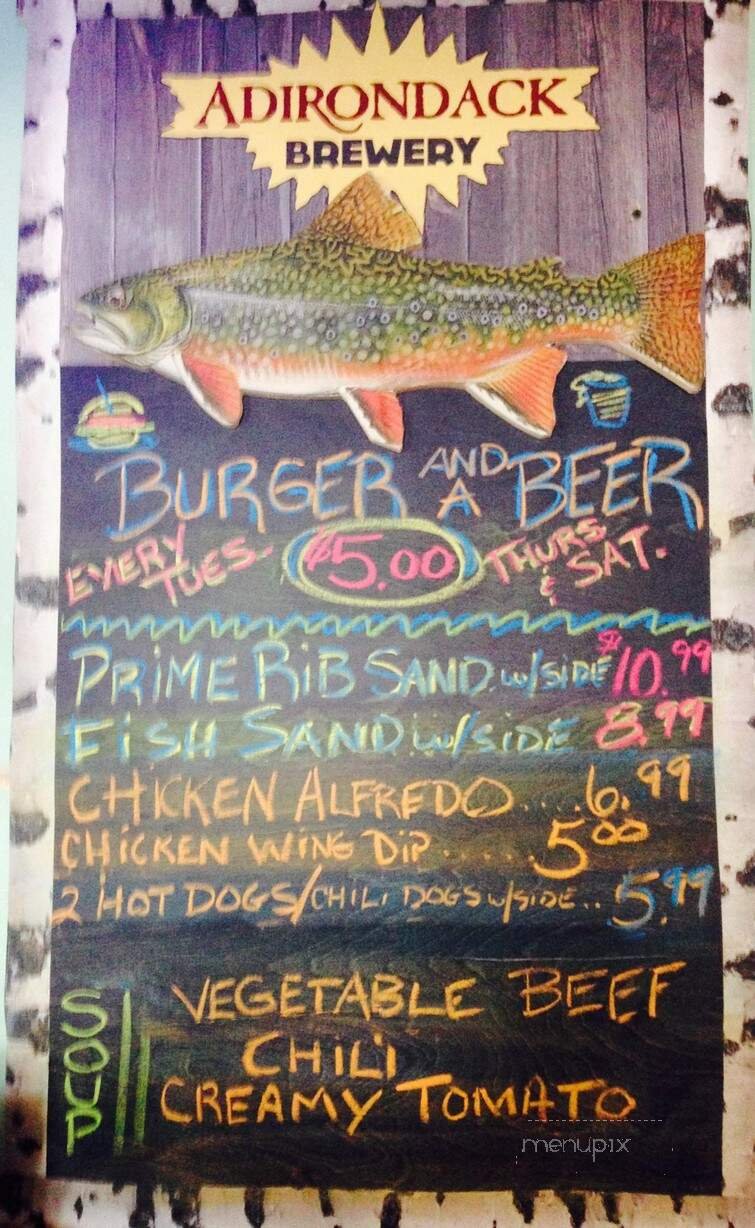 ADIRONDACK
BREWERY
BURGER AND A BEER
EVERY TUES. $5.00 THURS & SAT.
PRIME RIB SAND. w/SIDE $10.99
FISH SAND w/SIDE 8.99
CHICKEN ALFREDO.... 6.99
CHICKEN WING DIP..... 5.00
2 HOT DOGS/CHILI DOGS w/SIDE.. 5.99
SOUP
VEGETABLE BEEF
CHILI
CREAMY TOMATO
menupix